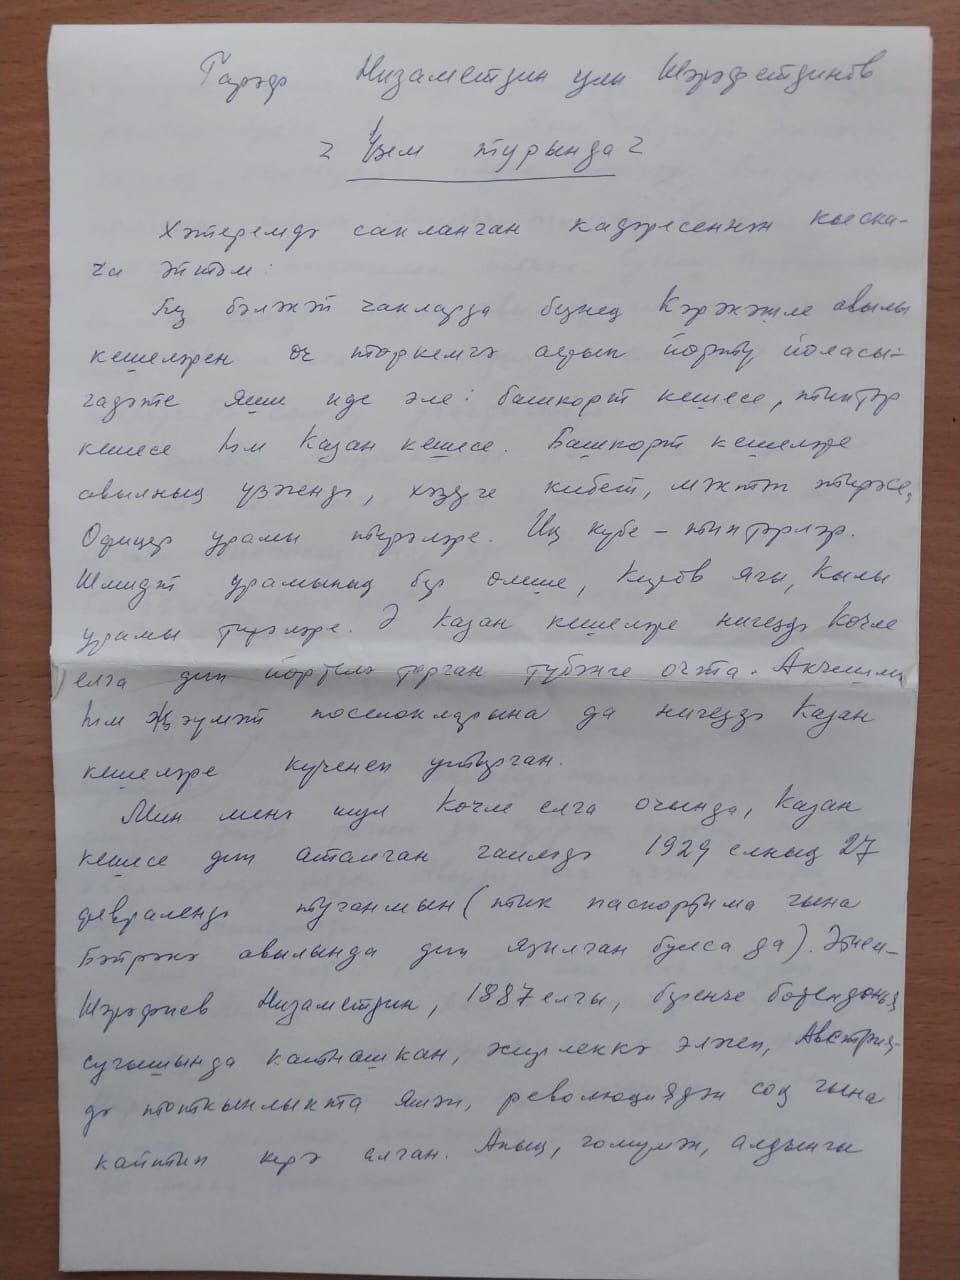 Низаметдин улы Шәрәфетдинов
Үзем турында
Хәтеремдә сакланган кадәресеннән кыска-
ча әйтәм:
Без бәләкәй чакларда безнең Кәрәкәшле авылы
кешеләрен өч төркемгә аерып йөртү йоласы-
гадәте яши иде әле: башкорт кешесе, типтәр
кешесе һәм Казан кешесе. Башкорт кешеләре
авылның үзәгендә, хәзерге кибет, мәктәп тирәсе,
Офицер урамы тирәләре. Иң күбе - типтәрләр.
Шмидт урамының бер өлеше, Киров ягы, Кызыл
урамы тирәләре. Ә Казан кешеләре нигездә Көчле
елга дип йөртелә торган түбәнге очта.
һәм Җәүмәт поселокларына да нигездә Казан
кешеләре күченеп утырган.
Мин менә шул Көчле елга очында, Казан
кешесе дип аталган гаиләдә 1929 елның 27
февралендә туганмын (тик паспортыма гына
Бәйрәкә авылында дип язылган булса да). Әтием-
Шәрәфиев Низаметдин, 1887 елгы, беренче бөтендөнья
сугышында катнашкан, әсирлеккә эләгеп, Австрия-
дә тоткынлыкта яшәп, революциядән соң гына
кайтып керә алган. Аның, гомумән, алдынгы